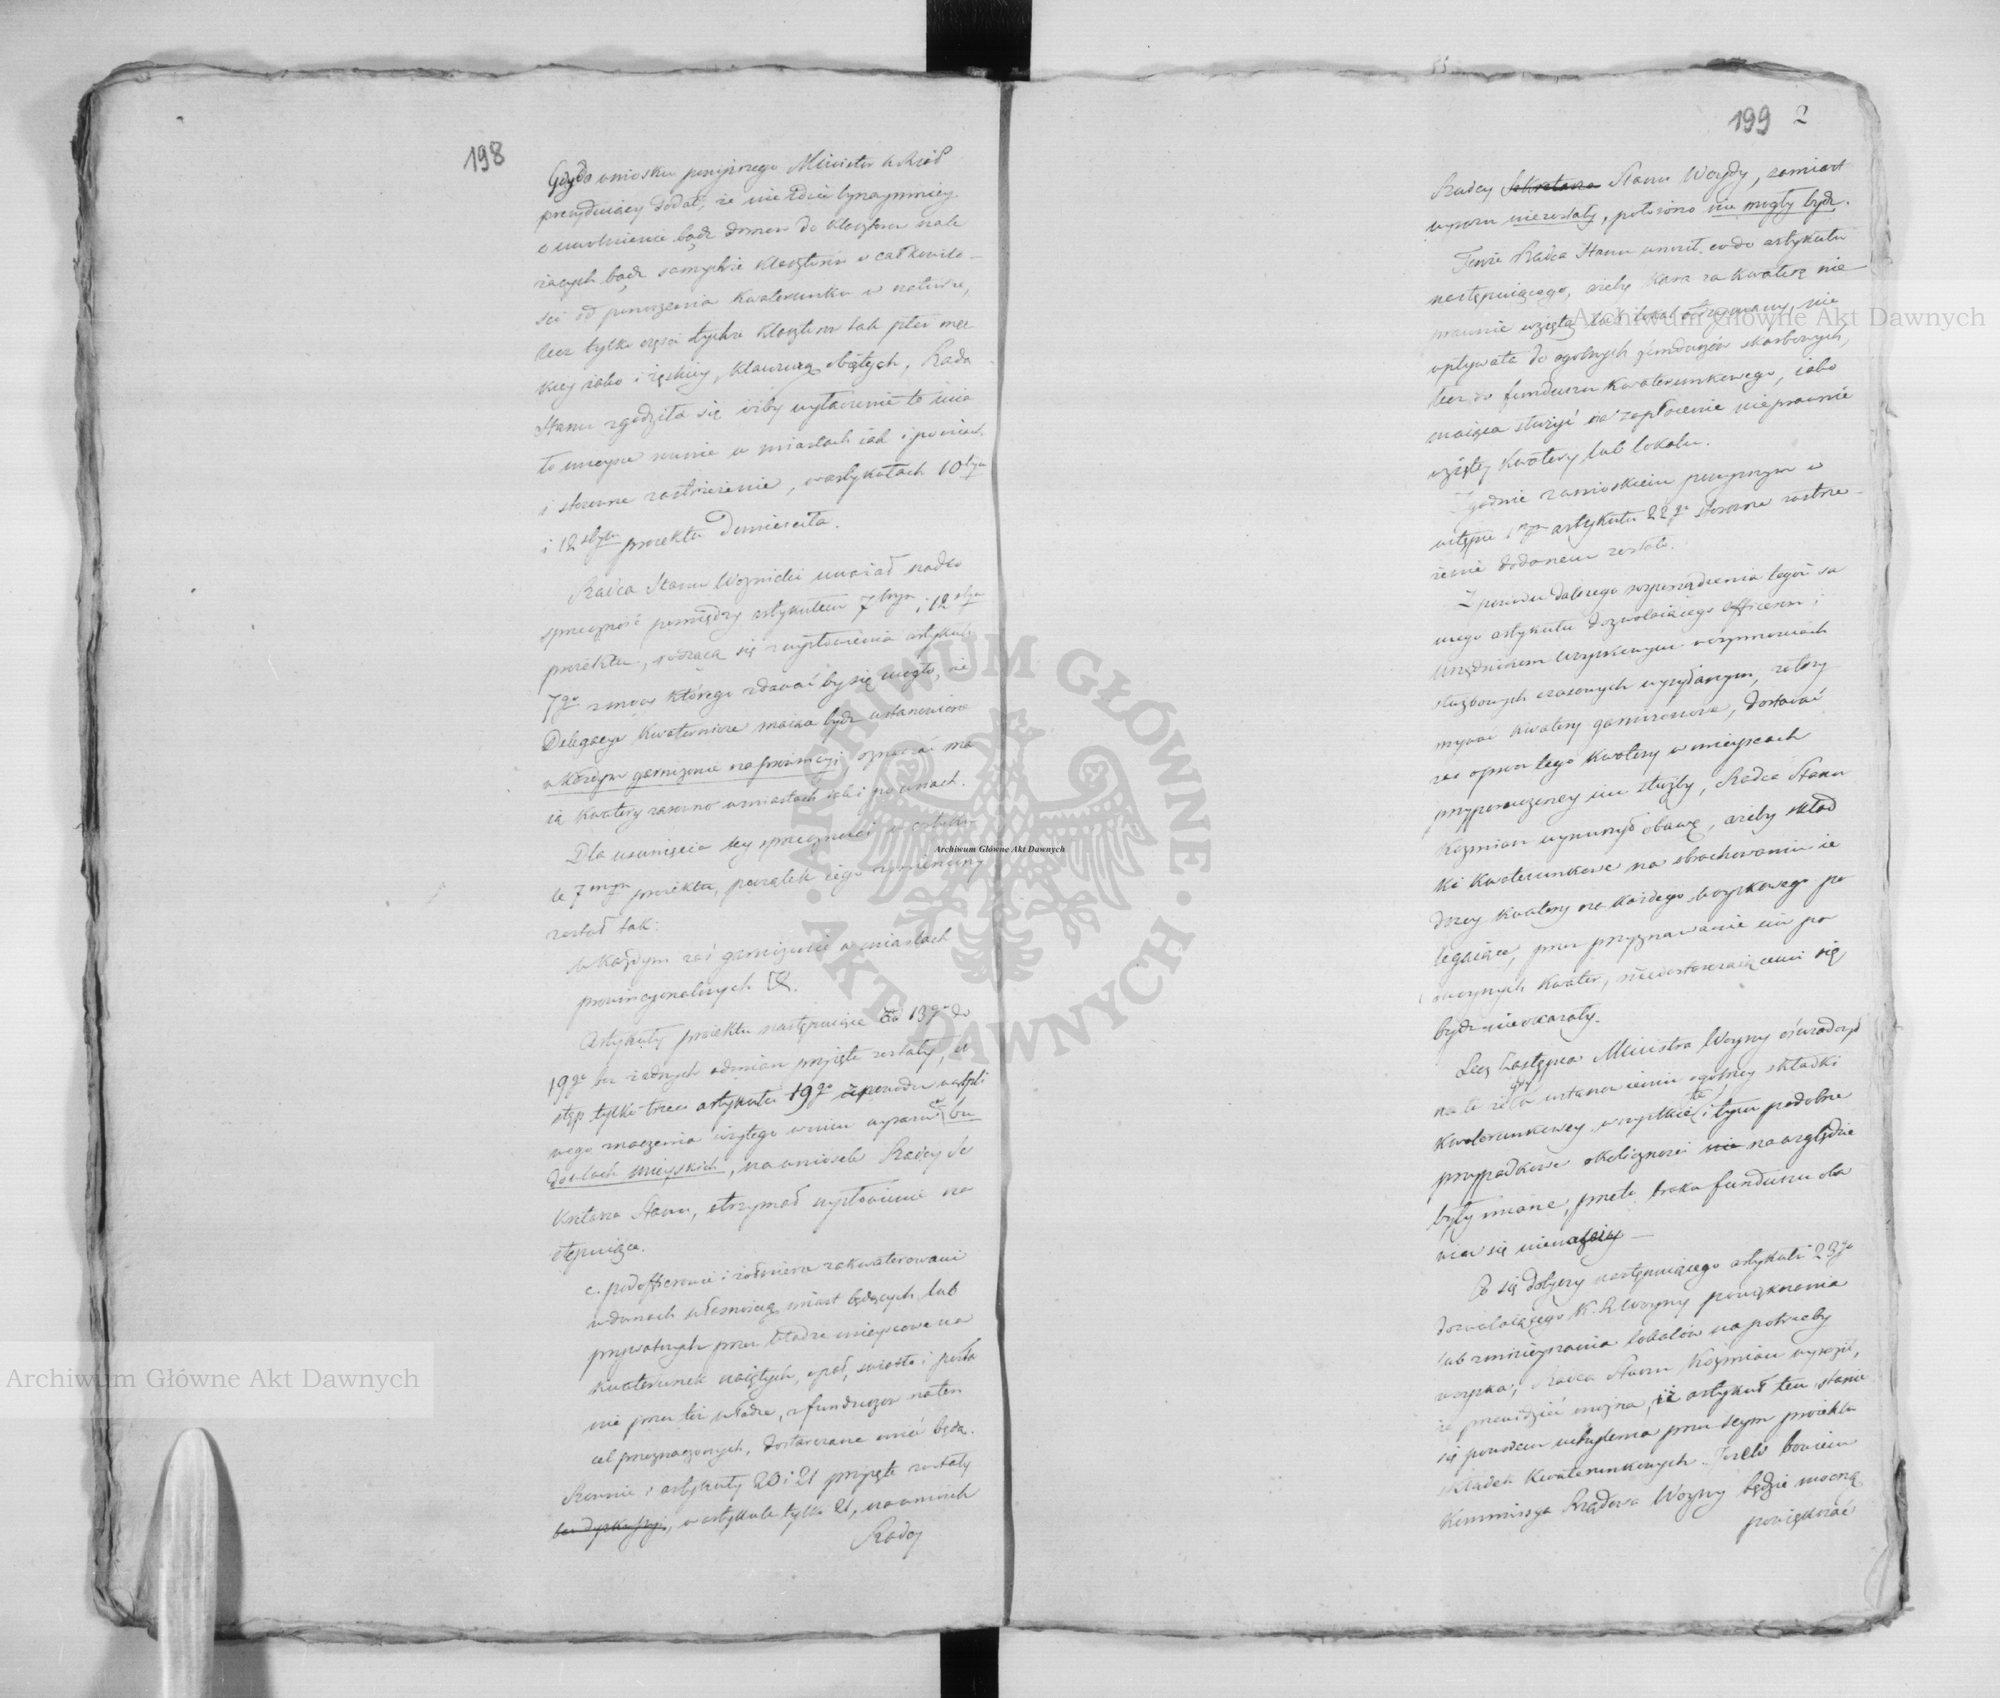 198
Gdy do wniosku powyższego Minister w Rząd
prezyduiący dodał, że nie idzie bynaymniey
o uwolnienie bądź domów do klasztoru nale
żących bądź samychże klasztorów w całkowito-
ści od ponoszenia kwaterunku w naturze,
lecz tylko części tychże klasztorów tak płci męz
kiey iako i żeńskiey, klauzurą obiętych, Rada
Stanu zgodziła się iżby wyłączenie to mia
ło mieysce równie w miastach iak i po wsiach
i stosowne zastrzeżenie, w artykułach 10tym
i 12stym proiektu Domieściła.
Radca Stanu Woznicki uważał nadto
sprzeczność pomiędzy artykułem 7mym i 12stym
proiektu, rodzącą się z wysłowienia artykułu
7go z mocy którego zdawać by się mogło, że
Delegacye kwaternicze maiące bydź ustanowione
w każdym garnizonie na prowincyi, oznaczać ma
ią kwatery zarówno w miastach iak i po wsiach.
Dla usunięcia tey sprzeczności w artyku-
le 7mym proiektu, początek iego zmieniony
został tak:
w każdym zaś garnizonie w miastach
prowincyonalnych &.
Artykuły proiektu następuiące od 13go do
19go bez żadnych odmian przyięte zostały, u
stęp tylko trzeci artykułu 19go z powodu wątpli
wego znaczenia użytego w nim wyrazu bu
dowlach mieyskich, na wniosek Radcy Se
kretarza Stanu, otrzymał wysłowienie na
stępuiące.
c. podofficerowie i żołnierze zakwaterowani
w domach własnością miast będących lub
prywatnych przez władze mieyscowe na
kwaterunek naiętych, opał, światło i posła
nie przez też władze, z funduszów na ten
cel przeznaczonych, dostarczane mieć będą.
Równie i artykuły 20 i 21 przyięte zostały
bez dyskussyi, w artykule tylko 21, na wniosek
Radcy
199 2
Radcy Sekretarza Stanu Woydy, zamiast
wyrazu niezostały, położono nie mogły bydź.
Tenże Radca Stanu wnosił co do artykułu
następuiącego, ażeby kara za kwaterę nie
prawnie wziętą lub lokal otrzymany, nie
wpływała do ogólnych funduszów skarbowych,
lecz do funduszu kwaterunkowego, iako
maiąca służyć na zapłacenie nieprawnie
wziętey kwatery lub lokalu.
Zgodnie z wnioskiem powyższym w
ustępie 1szym artykułu 22go stosowne zastrze-
żenie dodanem zostało.
Z powodu dalszego rozporządzenia tegoż sa
mego artykułu dozwalaiącego officerom i
urzędnikom woyskowym w czynnościach
służbowych czasowych wysyłanym, zatrzy
mywać kwatery garnizonowe, dostawać
zaś oprócz tego kwatery w mieyscach
przyporuczoney im służby, Radca Stanu
Kozmian wynurzył obawę, ażeby skład
ki kwaterunkowe na obrachowaniu ie
dney kwatery na każdego woyskowego po
legaiące, przez przyznawanie im po
dwoynych kwater, niedostarczaiącemi się
bydź nie okazały.
Lecz Zastępca Ministra Woyny oświadczył
na to że gdy w ustanowieniu ogólney składki
kwaterunkowey wszystkie te i tym podobne
przypadkowe okoliczności nie na względzie
były miane, przeto braku funduszu oba
wiać się nienależy —
Co się dotyczy następuiącego artykułu 23go
dozwalaiącego K. R. Woyny powiększania
lub zmnieyszania lokalów na potrzeby
woyska; Radca Stanu Kozmian wyraził,
że przewidzieć można, iż artykuł ten stanie
się powodem uchylenia przez Seym proiektu
składek kwaterunkowych. Jeżeli bowiem
Kommissya Rządowa Woyny będzie mocną
powiększać
Archiwum Główne Akt Dawnych
Archiwum Główne Akt Dawnych
Archiwum Główne Akt Dawnych
ARCHIWUM GŁÓWNE · AKT DAWNYCH ·